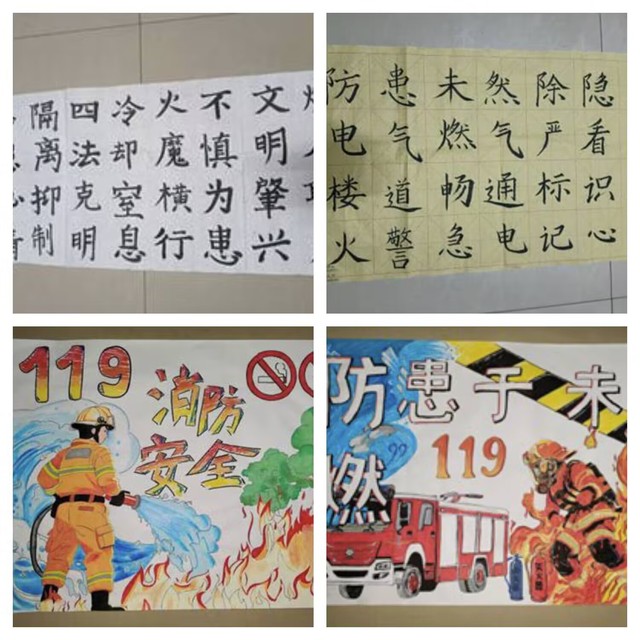 文明肇兴
不慎为患
火魔横行
冷却窒息
四法克明
隔离抑制
防患未然除隐
电气燃气严看
楼道畅通标识
火警急电记心
119
消防
安全
防患于未
燃
119
灭火器